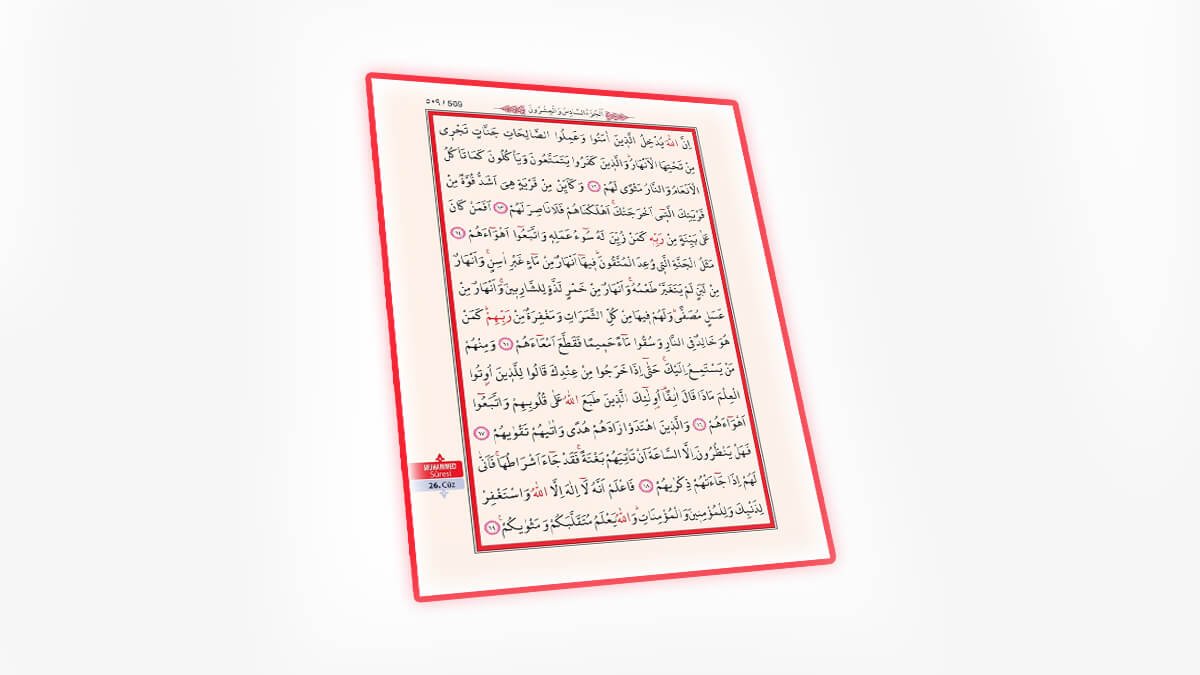 ٥٠٩ / 509
اَلْجُزْءُ السَّادِسُ وَالْعِشْرُونَ
اِنَّ اللّٰهَ يُدْخِلُ الَّذِينَ اٰمَنُوا وَعَمِلُوا الصَّالِحَاتِ جَنَّاتٍ تَجْرٖى
مِنْ تَحْتِهَا الْاَنْهَارُؕ وَالَّذِينَ كَفَرُوا يَتَمَتَّعُونَ وَيَاْكُلُونَ كَمَا تَاْكُلُ
الْاَنْعَامُ وَالنَّارُ مَثْوًى لَهُمْ ﴿١٢﴾ وَكَاَيِّنْ مِنْ قَرْيَةٍ هِىَ اَشَدُّ قُوَّةً مِنْ
قَرْيَتِكَ الَّتٖٓى اَخْرَجَتْكَۚ اَهْلَكْنَاهُمْ فَلَا نَاصِرَ لَهُمْ ﴿١٣﴾ اَفَمَنْ كَانَ
عَلٰى بَيِّنَةٍ مِنْ رَبِّهٖ كَمَنْ زُيِّنَ لَهُ سُٓوءُ عَمَلِهٖ وَاتَّبَعُٓوا اَهْوَٓاءَهُمْ ﴿١٤﴾
مَثَلُ الْجَنَّةِ الَّتٖى وُعِدَ الْمُتَّقُونَؕ فٖيهَٓا اَنْهَارٌ مِنْ مَٓاءٍ غَيْرِ اٰسِنٍۚ وَاَنْهَارٌ
مِنْ لَبَنٍ لَمْ يَتَغَيَّرْ طَعْمُهُۚ وَاَنْهَارٌ مِنْ خَمْرٍ لَذَّةٍ لِلشَّارِبٖينَۚ وَاَنْهَارٌ مِنْ
عَسَلٍ مُصَفًّىؕ وَلَهُمْ فٖيهَا مِنْ كُلِّ الثَّمَرَاتِ وَمَغْفِرَةٌ مِنْ رَبِّهِمْؕ كَمَنْ
هُوَ خَالِدٌ فِى النَّارِ وَسُقُوا مَٓاءً حَمٖيمًا فَقَطَّعَ اَمْعَٓاءَهُمْ ﴿١٥﴾ وَمِنْهُمْ
مَنْ يَسْتَمِعُ اِلَيْكَۚ حَتّٰٓى اِذَا خَرَجُوا مِنْ عِنْدِكَ قَالُوا لِلَّذٖينَ اُوتُوا
الْعِلْمَ مَاذَا قَالَ اٰنِفًاࣞ اُو۬لٰٓئِكَ الَّذٖينَ طَبَعَ اللّٰهُ عَلٰى قُلُوبِهِمْ وَاتَّبَعُٓوا
اَهْوَٓاءَهُمْ ﴿١٦﴾ وَالَّذٖينَ اهْتَدَوْا زَادَهُمْ هُدًى وَاٰتٰيهُمْ تَقْوٰيهُمْ ﴿١٧﴾
فَهَلْ يَنْظُرُونَ اِلَّا السَّاعَةَ اَنْ تَاْتِيَهُمْ بَغْتَةًۚ فَقَدْ جَٓاءَ اَشْرَاطُهَاۚ فَاَنّٰى
لَهُمْ اِذَا جَٓاءَتْهُمْ ذِكْرٰيهُمْ ﴿١٨﴾ فَاعْلَمْ اَنَّهُ لَٓا اِلٰهَ اِلَّا اللّٰهُ وَاسْتَغْفِرْ
لِذَنْبِكَ وَلِلْمُؤْمِنٖينَ وَالْمُؤْمِنَاتِؕ وَاللّٰهُ يَعْلَمُ مُتَقَلَّبَكُمْ وَمَثْوٰيكُمْ ﴿١٩﴾
MUHAMMED
Sûresi
26. Cüz